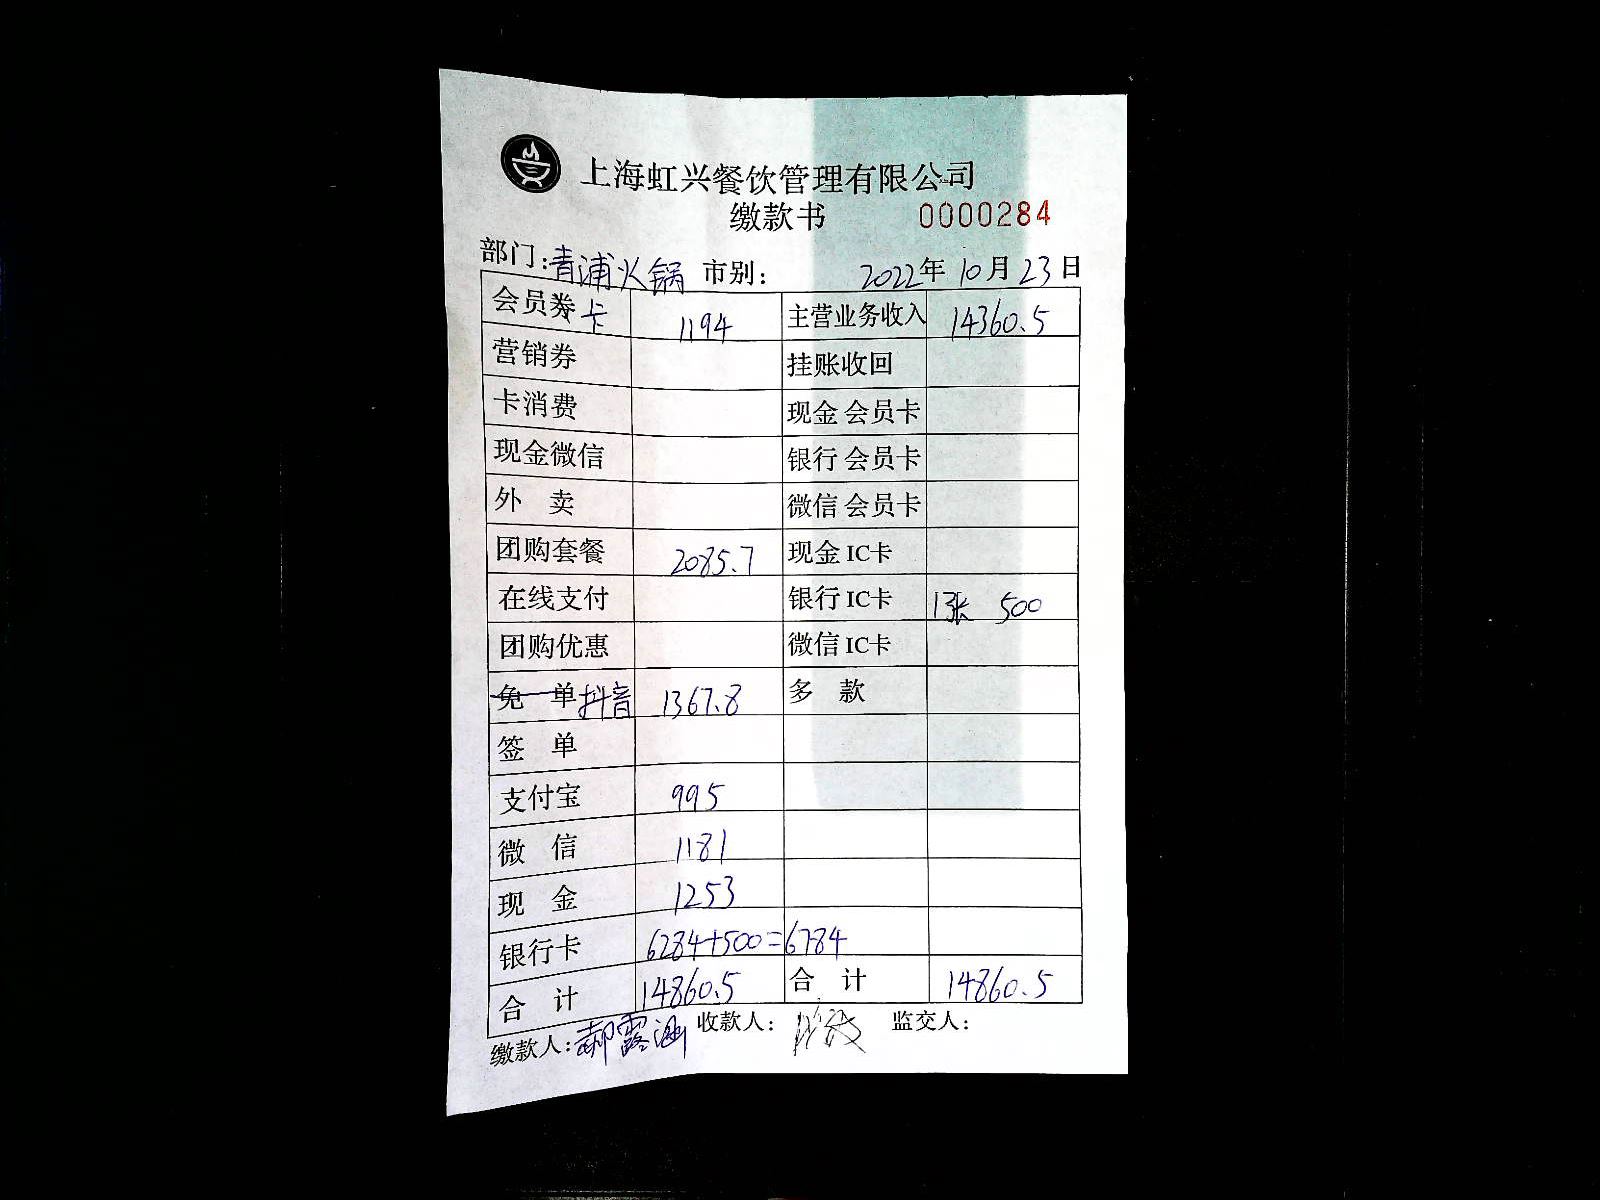 上海虹兴餐饮管理有限公司
缴款书 0000284
部门:青浦火锅 市别: 2022年10月23日
会员券卡 1194 主营业务收入 14360.5
营销券 挂账收回
卡消费 现金 会员卡
现金微信 银行 会员卡
外 卖 微信 会员卡
团购套餐 2085.7 现金 IC卡
在线支付 银行 IC卡 1张 500
团购优惠 微信 IC卡
免 单 抖音 1367.8 多 款
签 单
支付宝 995
微 信 1181
现 金 1253
银行卡 6284+500=6784
合 计 14860.5 合 计 14860.5
缴款人:郝露涵 收款人: 监交人: